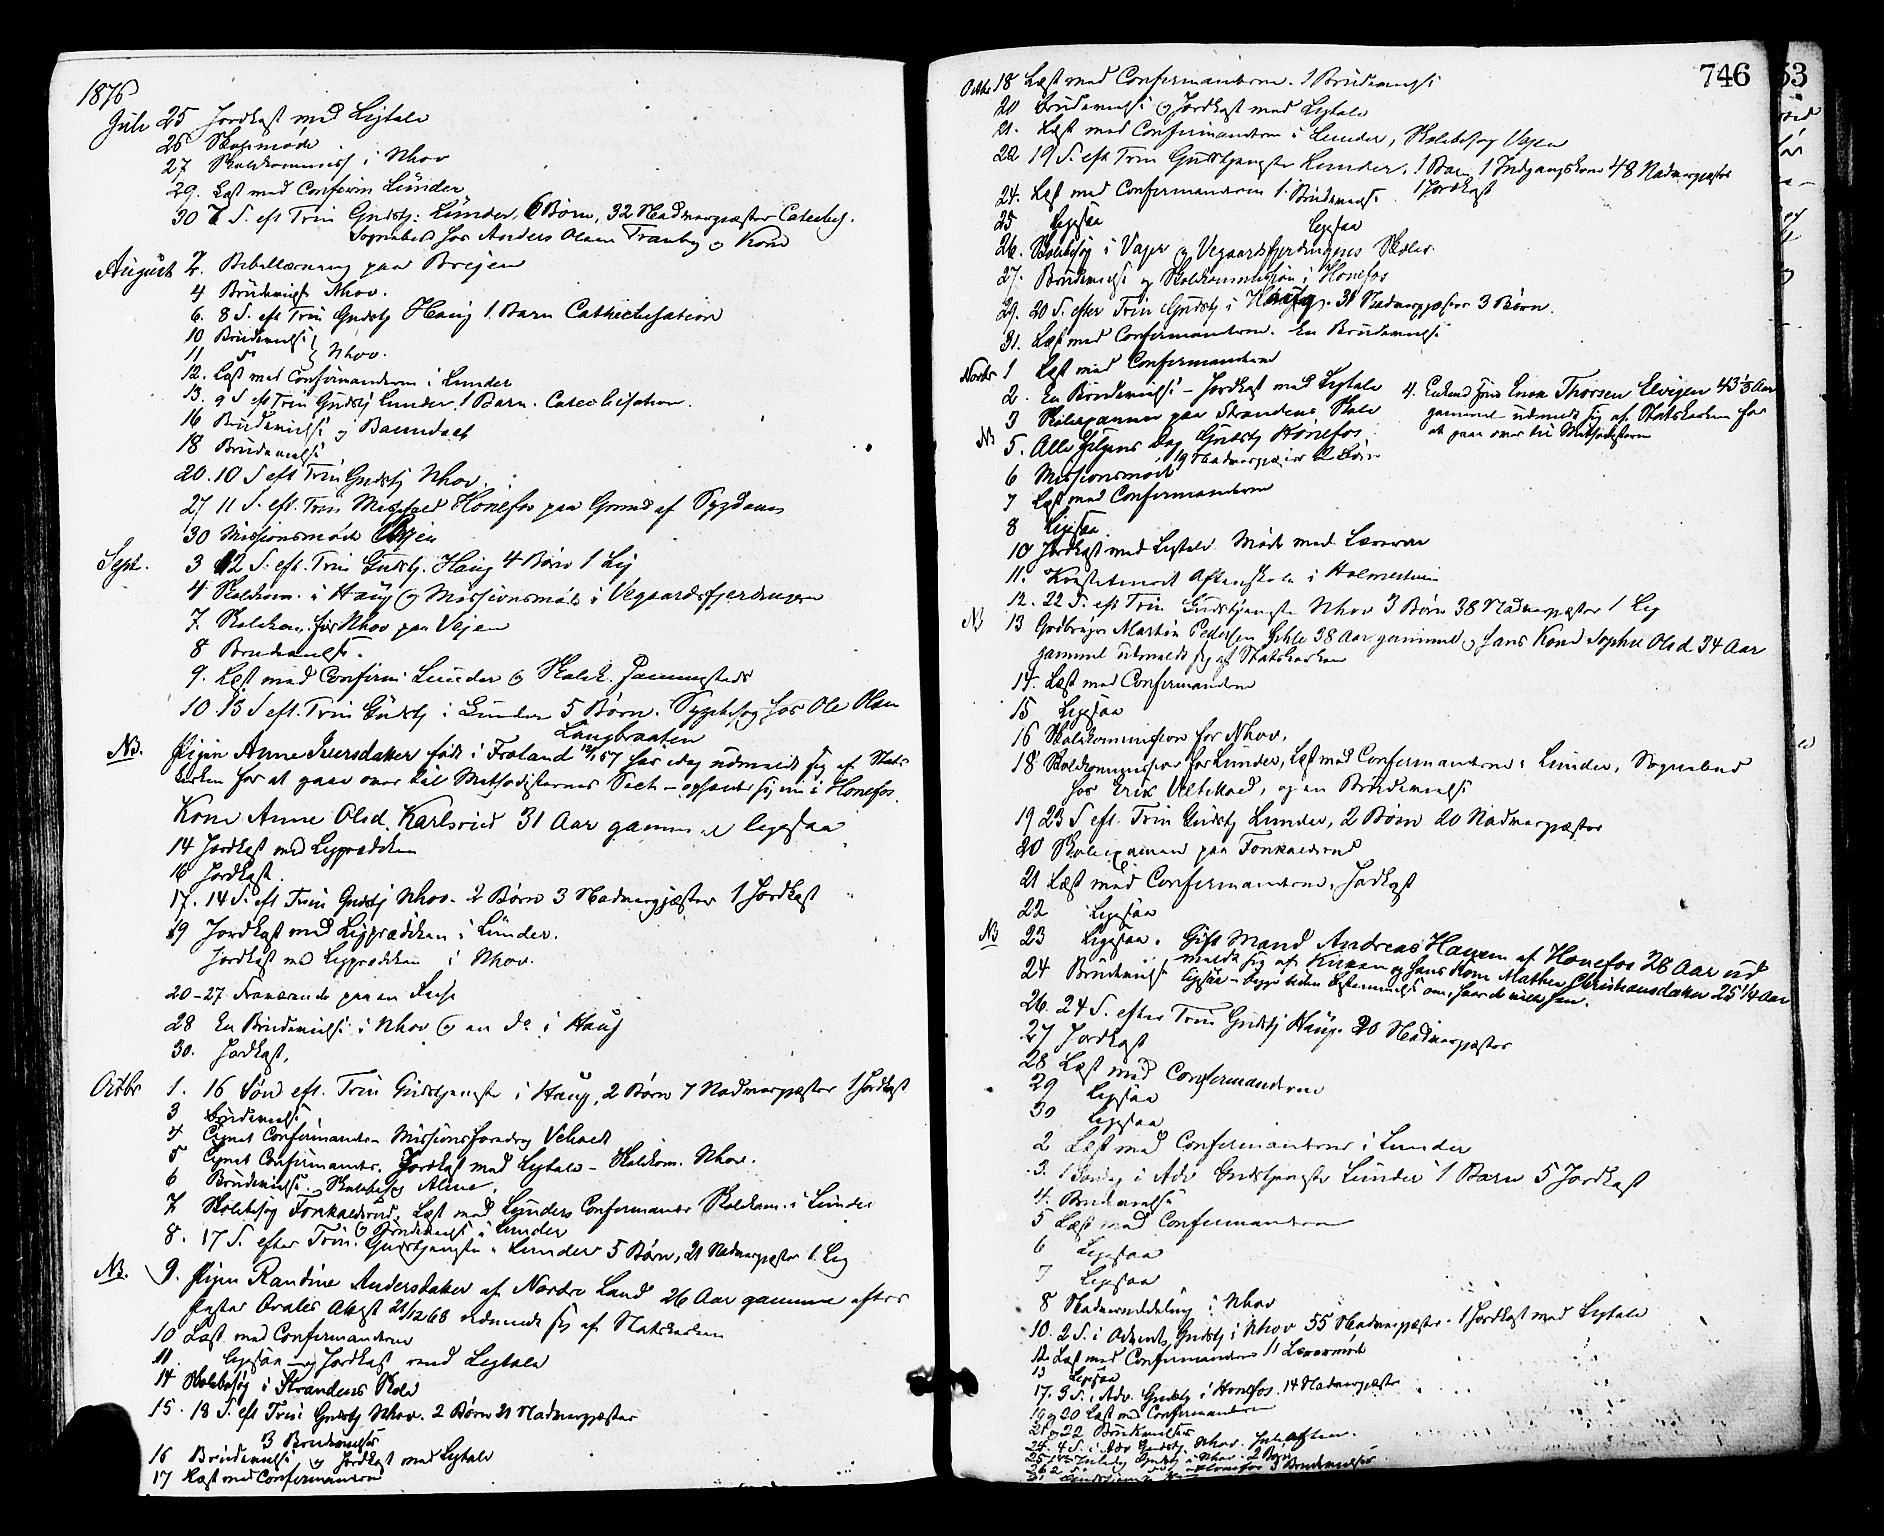 1876
Juli 25 Jordkast med Ligtale
26 Skolemøde
27 Skolekommiss i Nhov
29. Læst med Confirm Lunder
30 7 S. eft Trin Gudstj: Lunder, 6 Børn, 32 Nadvergjæster Catechis.
Sognebud hos Anders Olsen Tranby og Kone
August 2. Bibellæsning paa Veien
4 Brudevielse Nhov.
6. 8 S. eft Trin Gudstj Haug 1 Barn Cathechisation
10 Brudevielse
11 do Nhov.
12. Læst med Confirmanderne i Lunder
13. 9 S eft Trin Gudstj Lunder 1 Barn. Catechisation.
16 Brudevielse og Barnedaab
18 Brudevielse
20. 10 S eft Trin Gudstj Nhov.
27 11 S. eft. Trin Messefald Honefos paa Grund af Sygdom
30 Missionsmøde Veien
Sept. 3 12 S. eft. Trin Gudstj. Haug 4 Børn 1 Lig
4 Skolekom. i Haug og Missionsmøde i Vegaardsfjerdingen
7. Skolekom. for Nhov paa Veien
8 Brudevielse.
9. Læst med Confirm: Lunder og Skolek.
10 13 S eft. Trin Gudstj i Lunder 5 Børn. Sygebesøg hos Ole Olsen
Langbraaten
NB. Pigen Anne Iversdatter født i Froland 57 har idag udmeldt sig af Stats
kirken for at gaae over til Methodisternes Sect – opholdt sig nu i Honefos.
Kone Anne Olsd. Karlsrud 31 Aar gammel ligesaa
14 Jordkast med Ligprædiken
16 Jordkast.
17. 14 S. eft Trin Gudstj Nhov. 2 Børn 3 Nadvergjæster 1 Jordkast
19 Jordkast med Ligprædiken i Lunder.
Jordkast med Ligprædiken i Nhov.
20–27 Fraværende paa en Reise
28 En Brudevielse i Nhov og en do i Haug
30. Jordkast.
Octbr 1. 16 Sønd eft. Trin Gudstjeneste i Haug, 2 Børn 7 Nadvergjæster 1 Jordkast
3 Brudevielse
4 Confirmanderne Missionsforedrag
5 Confirmander. Jordkast med Ligtale – Skolekom. Nhov.
6 Brudevielse. Skolebesøg
7 Skolebesøg Fonkalsrud, Læst med Lunders Confirmander Skolekom. i Lunder
og Brudevielse i Lunder
8. 17 S. efter Trin. Gudstjeneste i Lunder 5 Børn, 21 Nadvergjæster 1 Lig
NB. 9. Pigen Randine Andersdatter af Nordre Land 26 Aar gammel efter
Attest 21/12 68 udmeldt sig af Statskirken
10 Læst med Confirmanderne
11. Ligesaa og Jordkast med Ligtale
14 Skolebesøg i Strandens Skole
15. 18 S. eft Trin Gudstj Nhov. 2 Børn 21 Nadvergjæster
3 Brudevielser
16 Brudevielse og Jordkast med Ligtale
17 Læst med Confirmanderne
746
53
Octbr 18 Læst med Confirmanterne. 1 Brudevielse
20 Brudevielse og Jordkast med Ligtale
21. Læst med Confirmanderne i Lunder, Skolebesøg Vagar
22 19 S. eft Trin Gudstjeneste Lunder, 1 Barn, 1 Indgangskone 48 Nadvergjæster
1 Jordkast
24. Læst med Confirmanderne 1 Brudevielse
25 Ligesaa Ligesaa
26. Skolebesøg i Vager og Vegaardsfjerdingens Skoler
27. Brudevielse og Skolekommission i Honefos
29. 20 S. efter Trin Gudstj i Haug. 31 Nadvergjæster 3 Børn.
31. Læst med Confirmanderne. En Brudevielse
Novbr 1 Læst med Confirmanderne
2. En Brudevielse – Jordkast med Ligtale
3 Skoleexamen paa Strandens Skole
NB 4. Thorsen Elvigen 43 1/2 Aar
gammel udmeldt sig af Statskirken for
at gaa over til Methodisterne
5. Alle Helgens Dag Gudstj Hønefos
19 Nadvergjæster 2 Børn
6 Missionsmøde
7 Læst med Confirmanderne
8 Ligesaa
10 Jordkast med Ligtale Møde med Lærerne
11. Aftenskole i
12. 22 S. eft Trin Gudstjeneste Nhov 3 Børn 38 Nadvergjæster 1 Lig
NB 13 Gaardbruger Martin Pedersen 38 Aar gammel og hans Kone Sophie Olsd 34 Aar
gammel udmeldt sig af Statskirken
14. Læst med Confirmanderne
15 Ligesaa
16 Skolekommission for Nhov.
18 Skolekommission for Lunder, Læst med Confirmanterne i Lunder, Sognebud
hos Erik Veltekad, og en Brudevielse
19 23 S eft. Trin Gudstj Lunder, 2 Børn 20 Nadvergjæster
20 Skoleexamen paa Fonkalsrud
21 Læst med Confirmanterne, Jordkast
22 Ligesaa
NB 23 Ligesaa. Gift Mand Andreas Hansen af Honefos 28 Aar ud
meldt sig af Kirken og hans Kone Mathea Christiansdatter 25 1/4 Aar
ligesaa – begge uden Bestemmelse om, hvor de ville hen.
24 Brudevielse
26. 24 S. efter Trin Gudstj Haug. 20 Nadvergjæster
27 Jordkast
28 Læst med Confirmanderne
29 Ligesaa
30 Ligesaa
2 Læst med Confirmanterne i Lunder
3. 1 Søndag i Adv Gudstjeneste Lunder 1 Barn 5 Jordkast
4. Brudevielse
5 Læst med Confirmanderne
6 Ligesaa
7 Ligesaa
8 Nadveruddeling i Nhov
10. 2 S. i Advent, Gudstj i Nhov 55 Nadvergjæster. 1 Jordkast med Ligtale
12 Læst med Confirmanderne 11 Lærermøde
13 Ligesaa
17. 3 S. i Adv. Gudstj i Honefos. 14 Nadvergjæster
19 og 20 Læst med Confirmanderne
21 og 22 Brudevielser
24. 4 S. i Adv Gudstj. Nhov. Juleaften.
25 1ste Juledag Gudstj i Nhov. 2 Børn
26 2 Honefos 3 Brudevielser